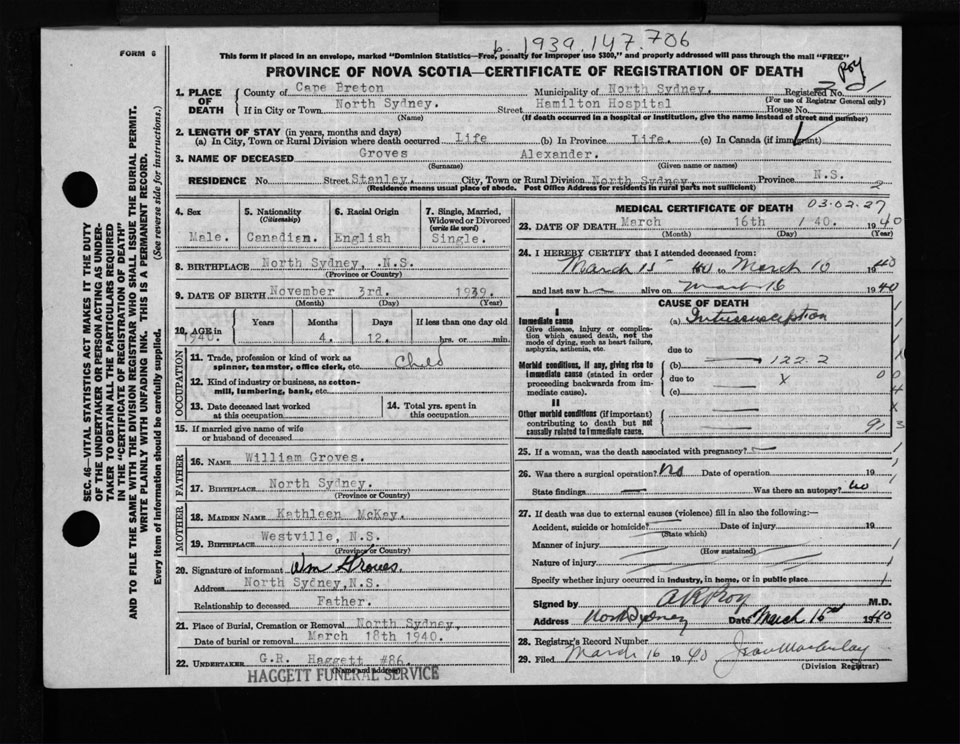 6. 1939.147.706
FORM 6
This form if placed in an envelope, marked "Dominion Statistics—Free, penalty for improper use $300," and properly addressed will pass through the mail "FREE"
PROVINCE OF NOVA SCOTIA—CERTIFICATE OF REGISTRATION OF DEATH
SEC. 46—VITAL STATISTICS ACT MAKES IT THE DUTY
OF THE UNDERTAKER OR PERSON ACTING AS UNDER-
TAKER TO OBTAIN ALL THE PARTICULARS REQUIRED
IN THE "CERTIFICATE OF REGISTRATION OF DEATH"
AND TO FILE THE SAME WITH THE DIVISION REGISTRAR WHO SHALL ISSUE THE BURIAL PERMIT.
WRITE PLAINLY WITH UNFADING INK. THIS IS A PERMANENT RECORD.
Every item of information should be carefully supplied. (See reverse side for instructions.)
1. PLACE OF DEATH
County of Cape Breton Municipality of North Sydney. Registered No.
(For use of Registrar General only)
If in City or Town North Sydney. Street Hamilton Hospital House No.
(Name) (If death occurred in a hospital or institution, give the name instead of street and number)
2. LENGTH OF STAY (in years, months and days)
(a) In City, Town or Rural Division where death occurred Life (b) In Province Life. (c) In Canada (if immigrant)
3. NAME OF DECEASED Groves Alexander.
(Surname) (Given name or names)
RESIDENCE No Street Stanley. City, Town or Rural Division North Sydney Province N.S.
(Residence means usual place of abode. Post Office Address for residents in rural parts not sufficient) 2
4. Sex
Male.
5. Nationality
(Citizenship)
Canadian.
6. Racial Origin
English
7. Single, Married,
Widowed or Divorced
(write the word)
Single.
8. BIRTHPLACE North Sydney, .N.S.
(Province or Country)
9. DATE OF BIRTH November 3rd. 1939.
(Month) (Day) (Year)
10. AGE in Years Months Days If less than one day old
1940. 4. 12. hrs. or min.
OCCUPATION
11. Trade, profession or kind of work as
spinner, teamster, office clerk, etc. Child
12. Kind of industry or business, as cotton-
mill, lumbering, bank, etc.
13. Date deceased last worked
at this occupation
14. Total yrs. spent in
this occupation
15. If married give name of wife
or husband of deceased
FATHER
16. NAME William Groves.
17. BIRTHPLACE North Sydney.
(Province or Country)
MOTHER
18. MAIDEN NAME Kathleen McKay.
19. BIRTHPLACE Westville, N.S.
(Province or Country)
20. Signature of informant Wm Groves
Address North Sydney,N.S.
Relationship to deceased Father.
21. Place of Burial, Cremation or Removal North Sydney.
Date of burial or removal March 18th 1940.
22. UNDERTAKER G.R. Haggett #86.
(Name and address)
HAGGETT FUNERAL SERVICE
MEDICAL CERTIFICATE OF DEATH 03.02.27
23. DATE OF DEATH March 16th 1 40. 1940
(Month) (Day) (Year)
24. I HEREBY CERTIFY that I attended deceased from:
March 15 to March 1940
and last saw h alive on March 16 1940
CAUSE OF DEATH
I
Immediate cause
Give disease, injury or complica-
tion which caused death, not the
mode of dying, such as heart failure,
asphyxia, asthenia, etc.
(a) Intussusception
due to
Morbid conditions, if any, giving rise to
immediate cause (stated in order
proceeding backwards from im-
mediate cause).
(b) 122.2
due to x
(c)
II
Other morbid conditions (if important)
contributing to death but not
causally related to immediate cause.
25. If a woman, was the death associated with pregnancy?
26. Was there a surgical operation? No Date of operation 19
State findings Was there an autopsy? No
27. If death was due to external causes (violence) fill in also the following:—
Accident, suicide or homicide? Date of injury 19
(State which)
Manner of injury
(How sustained)
Nature of injury
Specify whether injury occurred in industry, in home, or in public place
Signed by M.D.
Address North Sydney Date March 16 1940
28. Registrar's Record Number
29. Filed March 16 1940
(Division Registrar)